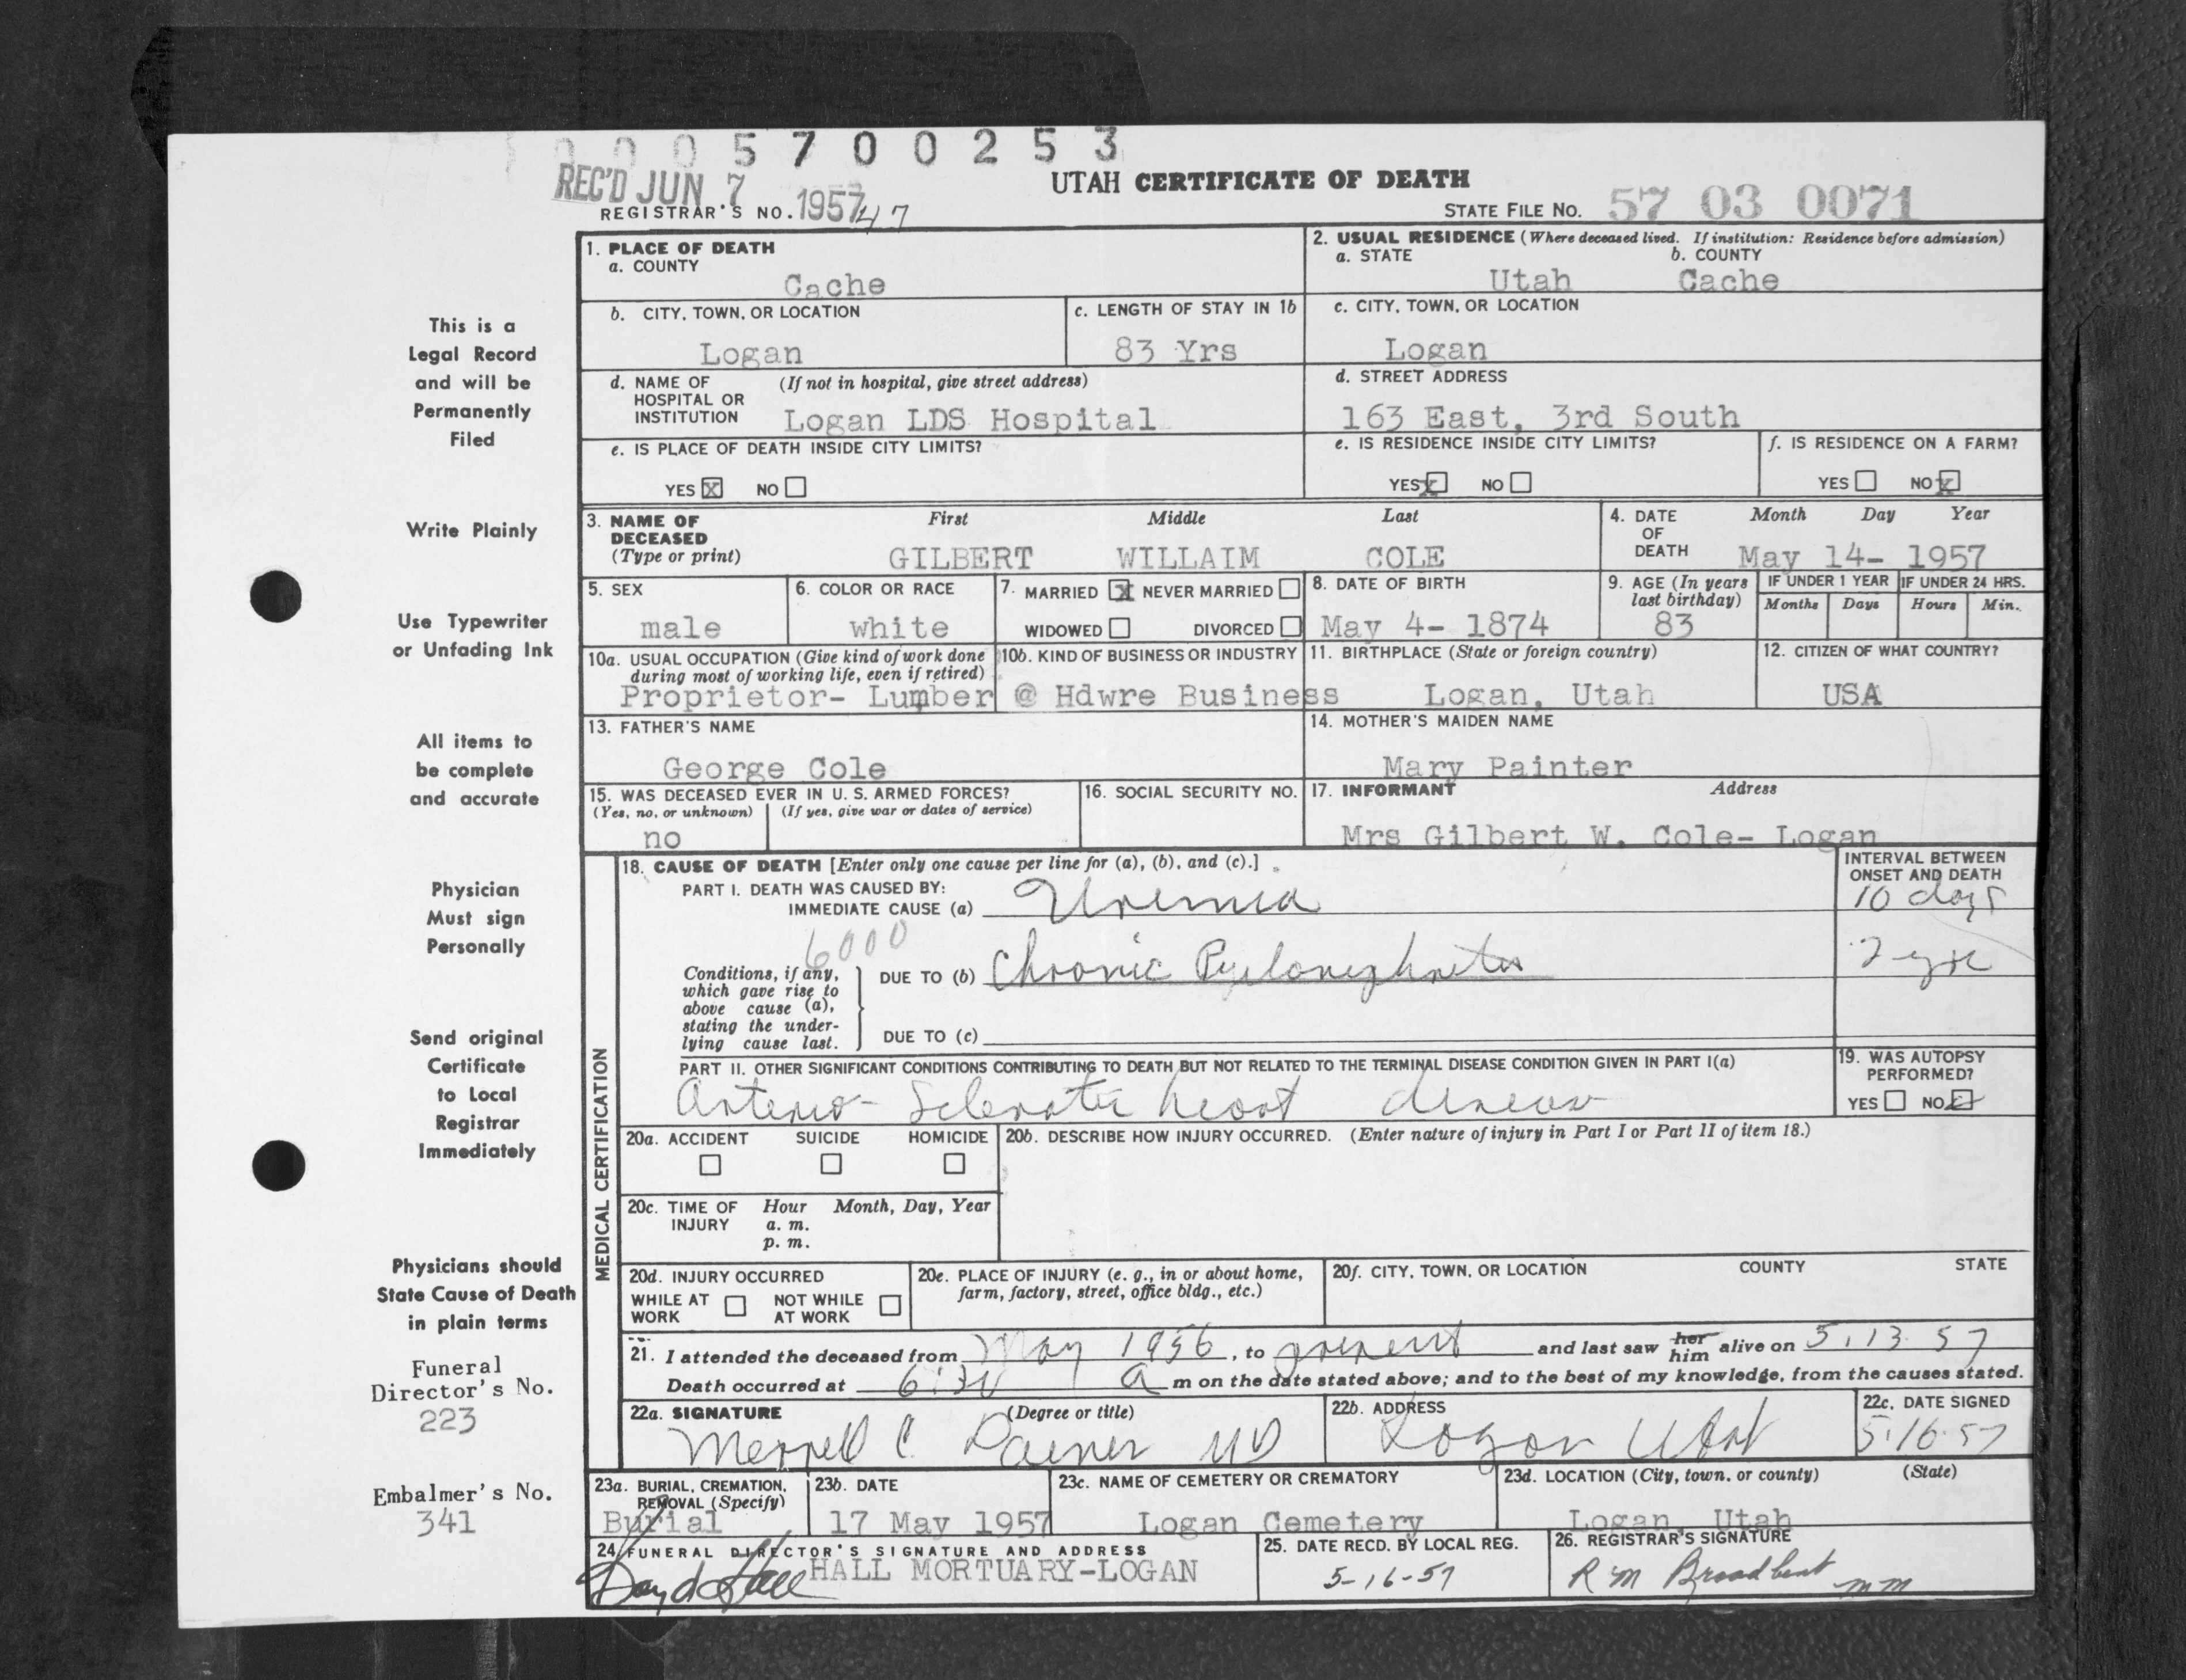 0005700253
REC'D JUN 7 1957
UTAH CERTIFICATE OF DEATH
REGISTRAR'S NO. 47
STATE FILE NO. 57 03 0071
This is a
Legal Record
and will be
Permanently
Filed
Write Plainly
Use Typewriter
or Unfading Ink
All items to
be complete
and accurate
Physician
Must sign
Personally
Send original
Certificate
to Local
Registrar
Immediately
Physicians should
State Cause of Death
in plain terms
Funeral
Director's No.
223
Embalmer's No.
341
1. PLACE OF DEATH
a. COUNTY
Cache
2. USUAL RESIDENCE (Where deceased lived. If institution: Residence before admission)
a. STATE b. COUNTY
Utah Cache
b. CITY, TOWN, OR LOCATION
Logan
c. LENGTH OF STAY IN 1b
83 Yrs
c. CITY, TOWN, OR LOCATION
Logan
d. NAME OF (If not in hospital, give street address)
HOSPITAL OR
INSTITUTION Logan LDS Hospital
d. STREET ADDRESS
163 East, 3rd South
e. IS PLACE OF DEATH INSIDE CITY LIMITS?
YES X NO
e. IS RESIDENCE INSIDE CITY LIMITS?
YES X NO
f. IS RESIDENCE ON A FARM?
YES NO X
3. NAME OF First Middle Last
DECEASED
(Type or print) GILBERT WILLAIM COLE
4. DATE Month Day Year
OF
DEATH May 14- 1957
5. SEX
male
6. COLOR OR RACE
white
7. MARRIED X NEVER MARRIED
WIDOWED DIVORCED
8. DATE OF BIRTH
May 4- 1874
9. AGE (In years
last birthday)
83
IF UNDER 1 YEAR IF UNDER 24 HRS.
Months Days Hours Min.
10a. USUAL OCCUPATION (Give kind of work done
during most of working life, even if retired)
10b. KIND OF BUSINESS OR INDUSTRY
Proprietor- Lumber @ Hdwre Business
11. BIRTHPLACE (State or foreign country)
Logan, Utah
12. CITIZEN OF WHAT COUNTRY?
USA
13. FATHER'S NAME
George Cole
14. MOTHER'S MAIDEN NAME
Mary Painter
15. WAS DECEASED EVER IN U. S. ARMED FORCES?
(Yes, no, or unknown) (If yes, give war or dates of service)
no
16. SOCIAL SECURITY NO.
17. INFORMANT Address
Mrs Gilbert W. Cole- Logan
MEDICAL CERTIFICATION
18. CAUSE OF DEATH [Enter only one cause per line for (a), (b), and (c).]
INTERVAL BETWEEN
ONSET AND DEATH
PART I. DEATH WAS CAUSED BY:
IMMEDIATE CAUSE (a) Uremia 10 days
6000
Conditions, if any,
which gave rise to
above cause (a),
stating the under-
lying cause last.
DUE TO (b) Chronic Pyelonephritis 2 yrs
DUE TO (c)
PART II. OTHER SIGNIFICANT CONDITIONS CONTRIBUTING TO DEATH BUT NOT RELATED TO THE TERMINAL DISEASE CONDITION GIVEN IN PART I(a)
Arterio- Sclerotic heart disease
19. WAS AUTOPSY
PERFORMED?
YES NO
20a. ACCIDENT SUICIDE HOMICIDE
20b. DESCRIBE HOW INJURY OCCURRED. (Enter nature of injury in Part I or Part II of item 18.)
20c. TIME OF Hour Month, Day, Year
INJURY a. m.
p. m.
20d. INJURY OCCURRED
WHILE AT NOT WHILE
WORK AT WORK
20e. PLACE OF INJURY (e. g., in or about home,
farm, factory, street, office bldg., etc.)
20f. CITY, TOWN, OR LOCATION COUNTY STATE
21. I attended the deceased from May 1956, to present and last saw her him alive on 5.13.57
Death occurred at 6:30 a m on the date stated above; and to the best of my knowledge, from the causes stated.
22a. SIGNATURE (Degree or title)
Merrell C. Daines MD
22b. ADDRESS
Logan Utah
22c. DATE SIGNED
5.16.57
23a. BURIAL, CREMATION,
REMOVAL (Specify)
Burial
23b. DATE
17 May 1957
23c. NAME OF CEMETERY OR CREMATORY
Logan Cemetery
23d. LOCATION (City, town, or county) (State)
Logan, Utah
24. FUNERAL DIRECTOR'S SIGNATURE AND ADDRESS
Hall HALL MORTUARY-LOGAN
25. DATE RECD. BY LOCAL REG.
5-16-57
26. REGISTRAR'S SIGNATURE
R M Broadbent mm